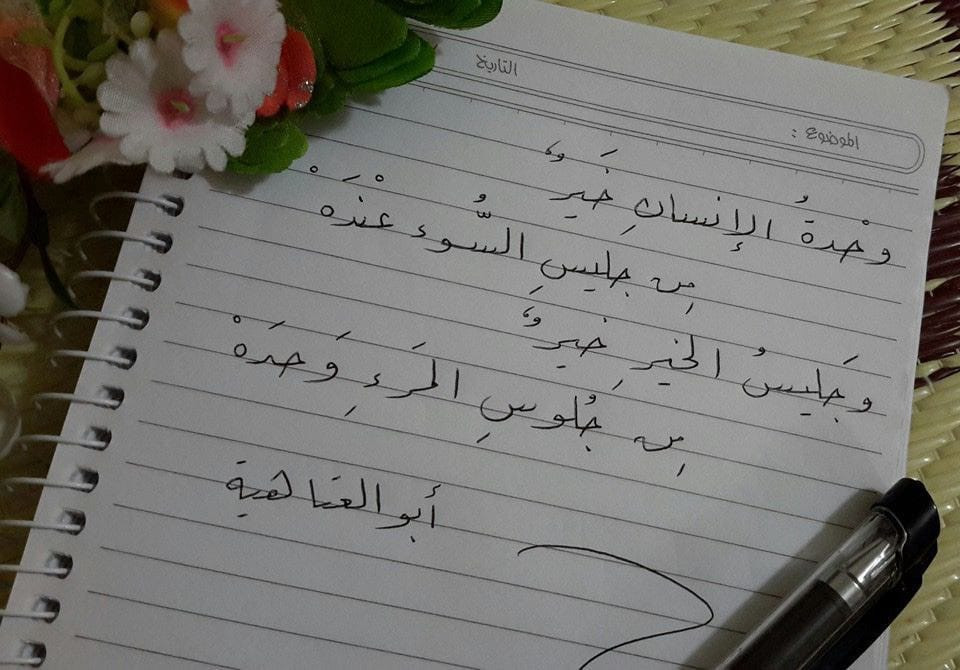 التاريخ
الموضوع :
وحْدةُ الإنسانِ خَيرٌ
مِن جليسِ السُّوء عنْدَهْ
وَجَليسُ الخيرِ خيرٌ
مِن جُلوسِ المَرءِ وَحدَهْ
أبو العتاهية